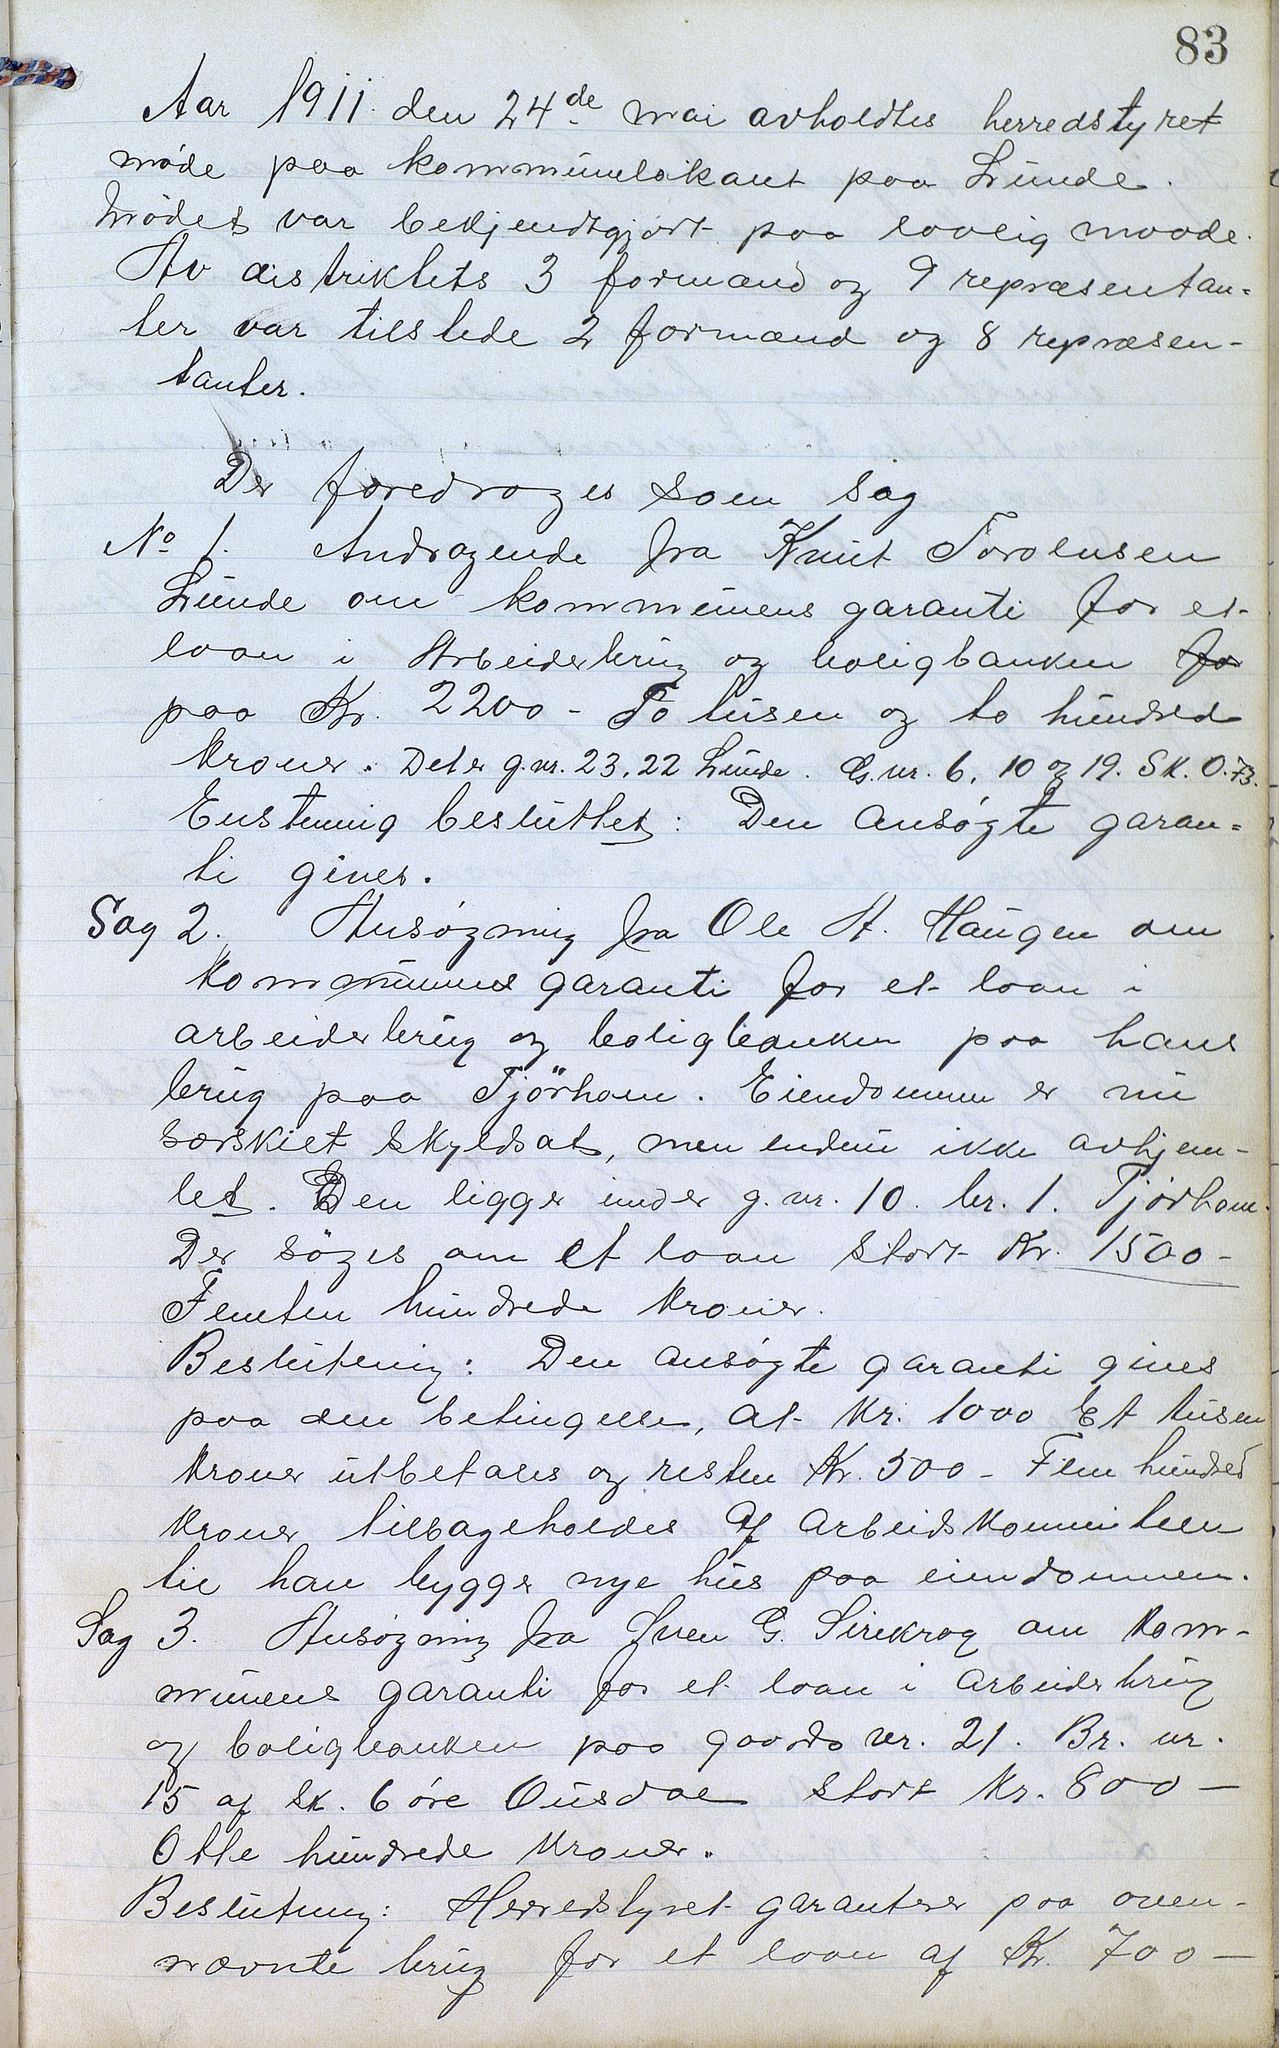 83
Aar 1911 den 24de mai avholdtes herredstyret
møde paa kommunelokalet paa Lunde.
Mødet var bekjendtgjort paa lovlig maade.
Av distriktets 3 formænd og 9 repræsentan=
ter var tilstede 2 formænd og 8 repræsen-
tanter.
Der foredroges som sag
No 1. Andragende fra Knut Torolusen
Lunde om kommunens garanti for et
laan i Arbeiderbrug og boligbanken for
paa Kr. 2200 - To tusen og to hundred
kroner. Det er g.nr. 23, 22 Lunde. G.nr. 6, 10 og 19. Sk. 0.73.
Enstemmig besluttet: Den ansøgte garan=
ti gives.
Sag 2. Ansøgning fra Ole A. Haugen om
kommunens garanti for et laan i
arbeiderbrug og boligbanken paa hans
brug paa Tjörhom. Eiendommen er nu
særskilt skyldsat, men endnu ikke avhjem-
let. Den ligger under g.nr. 10. br. 1. Tjørhom.
Der søges om et laan stort Kr. 1500 -
Femten hundrede kroner.
Beslutning: Den ansøgte garanti gives
paa den betingelse, at Kr. 1000 Et tusen
kroner utbetales og resten Kr. 500 - Fem hundred
kroner tilbageholdes af Arbeidskomiteen
til han bygger nye hus paa eiendommen.
Sag 3. Ansøgning fra Sven G. Sirekrog om kom-
munens garanti for et laan i Arbeiderbrug
og boligbanken paa gaards nr. 21. Br. nr.
15 af sk. 6 øre Ousdal stort Kr. 800 -
Otte hundrede kroner.
Beslutning: Herredstyret garanterer paa oven-
nævnte brug for et laan af Kr. 700 -